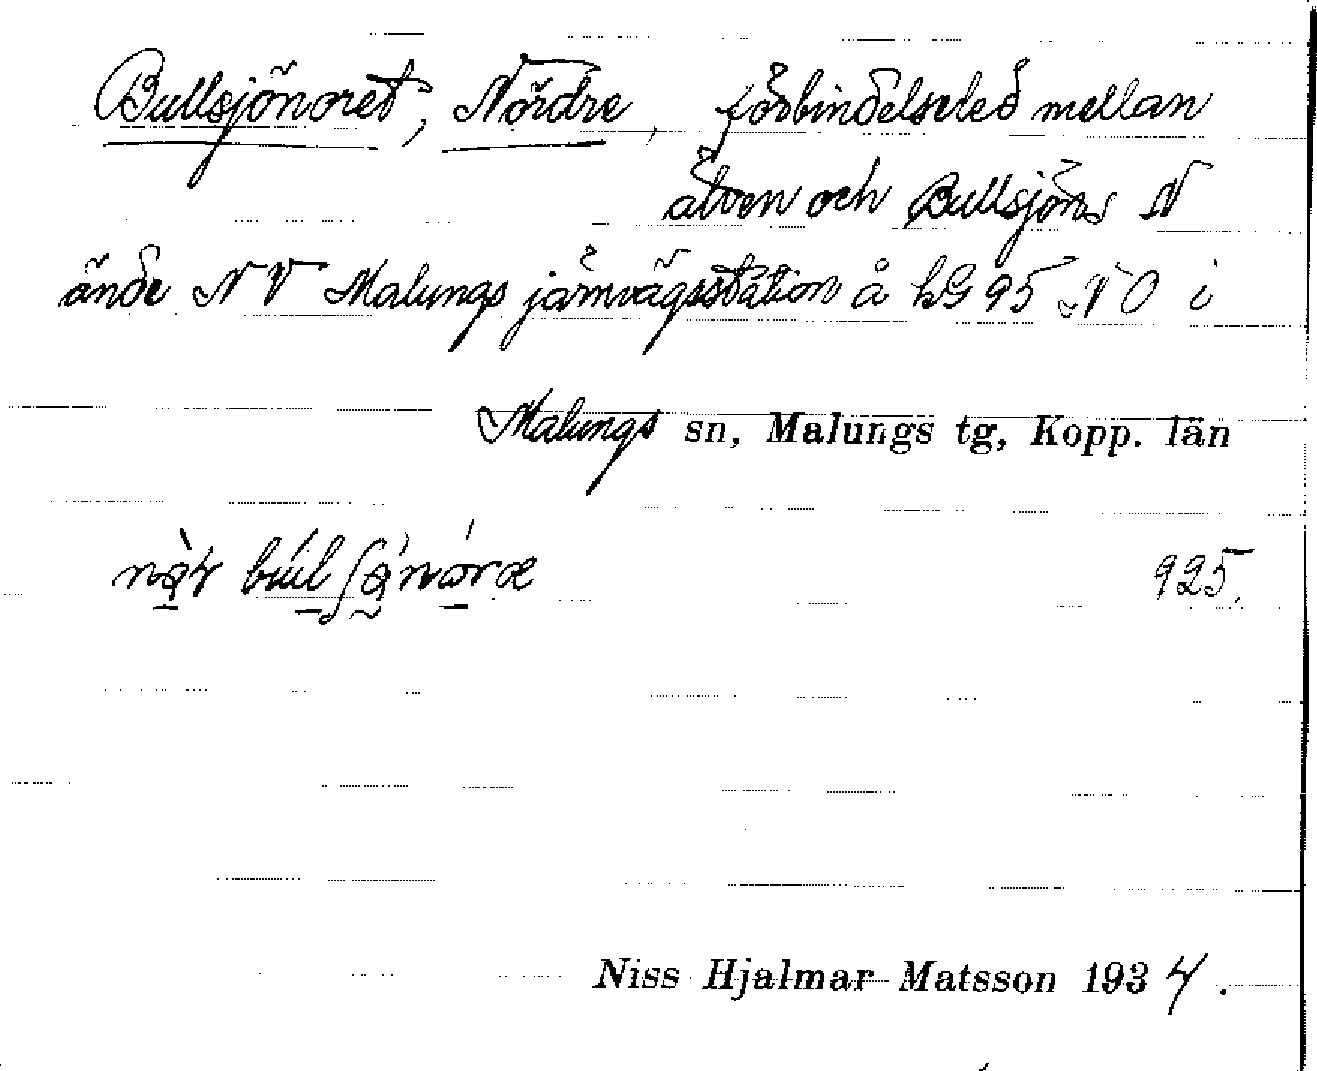 Bullsjönoret, Nördre, förbindelseled mellan
älven och Bullsjöns N
ände NV Malungs järnvägsstation å hG 95 NO i
Malungs sn, Malungs tg, Kopp. län
925.
Niss Hjalmar Matsson 1934.